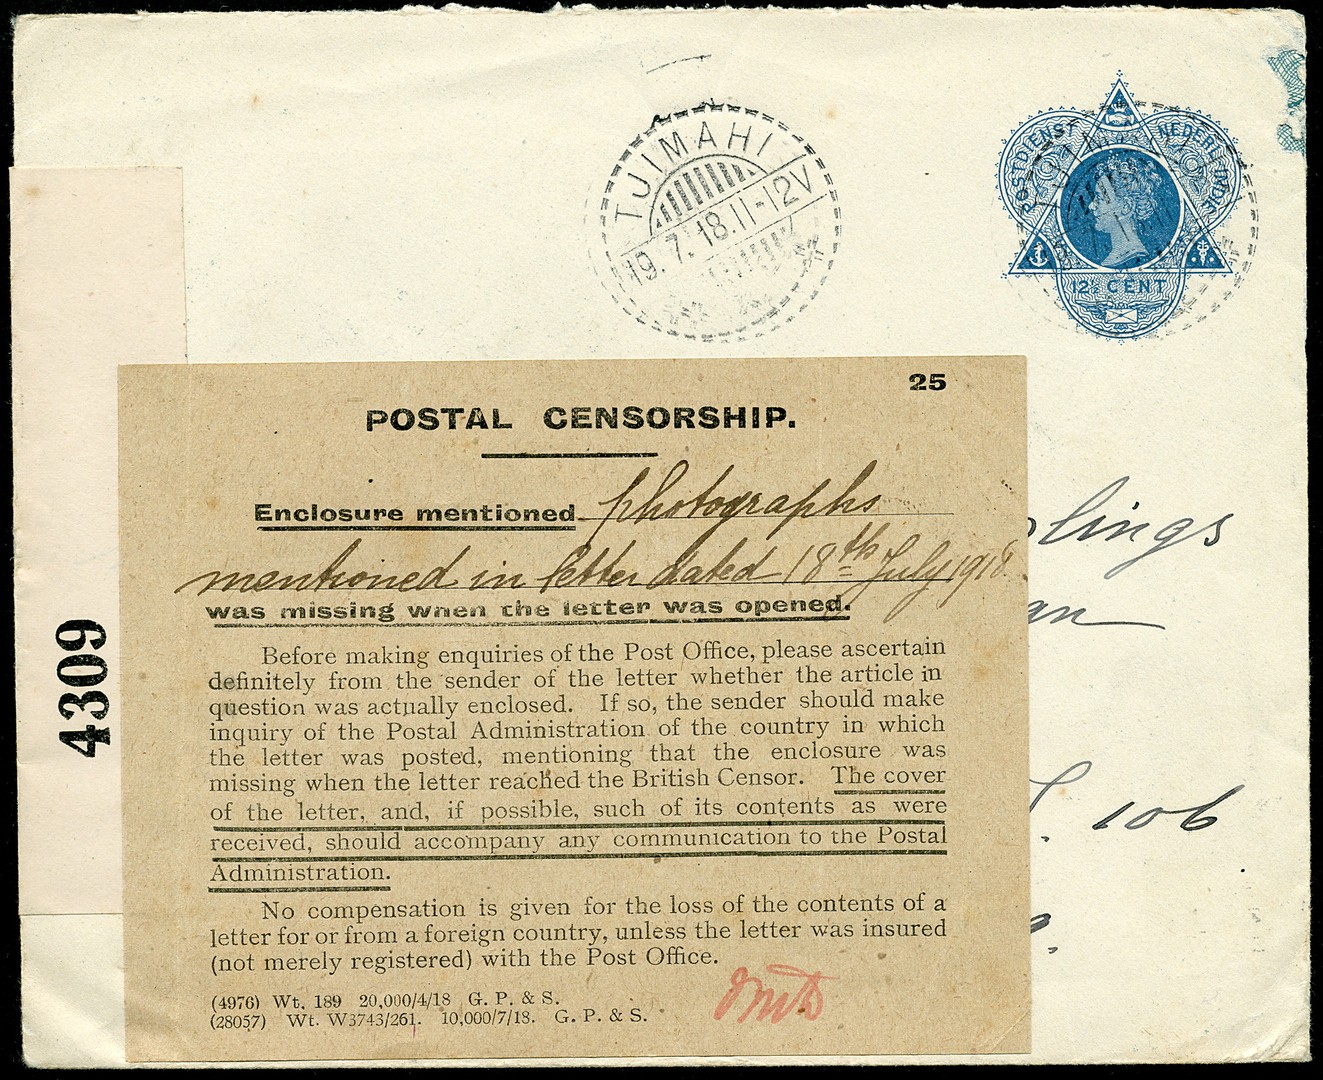 TJIMAHI
19.7.18.11-12V
POSTDIENST NEDERL. INDIË
12½ CENT
25
POSTAL CENSORSHIP.
Enclosure mentioned photographs
mentioned in letter dated 18th July 1918.
was missing when the letter was opened.
Before making enquiries of the Post Office, please ascertain
definitely from the sender of the letter whether the article in
question was actually enclosed. If so, the sender should make
inquiry of the Postal Administration of the country in which
the letter was posted, mentioning that the enclosure was
missing when the letter reached the British Censor. The cover
of the letter, and, if possible, such of its contents as were
received, should accompany any communication to the Postal
Administration.
No compensation is given for the loss of the contents of a
letter for or from a foreign country, unless the letter was insured
(not merely registered) with the Post Office.
(4976) Wt. 189 20,000/4/18 G. P. & S.
(28057) Wt. W3743/261. 10,000/7/18. G. P. & S.
4309
lings
an
106